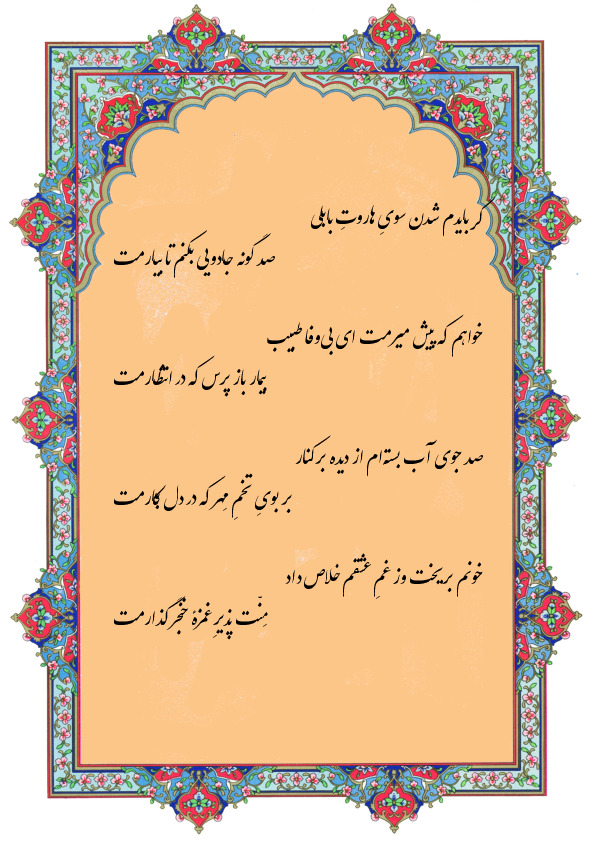 گر بایدم شدن سویِ هاروتِ بابلی
صد گونه جادویی بکنم تا بیارمت
خواهم که پیش میرمت ای بی‌وفا طبیب
بیمار باز پرس که در انتظارمت
صد جوی آب بسته‌ام از دیده بر کنار
بر بویِ تخمِ مِهر که در دل بکارمت
خونم بریخت وز غمِ عشقم خلاص داد
مِنّت پذیرِ غمزهٔ خنجر گذارمت